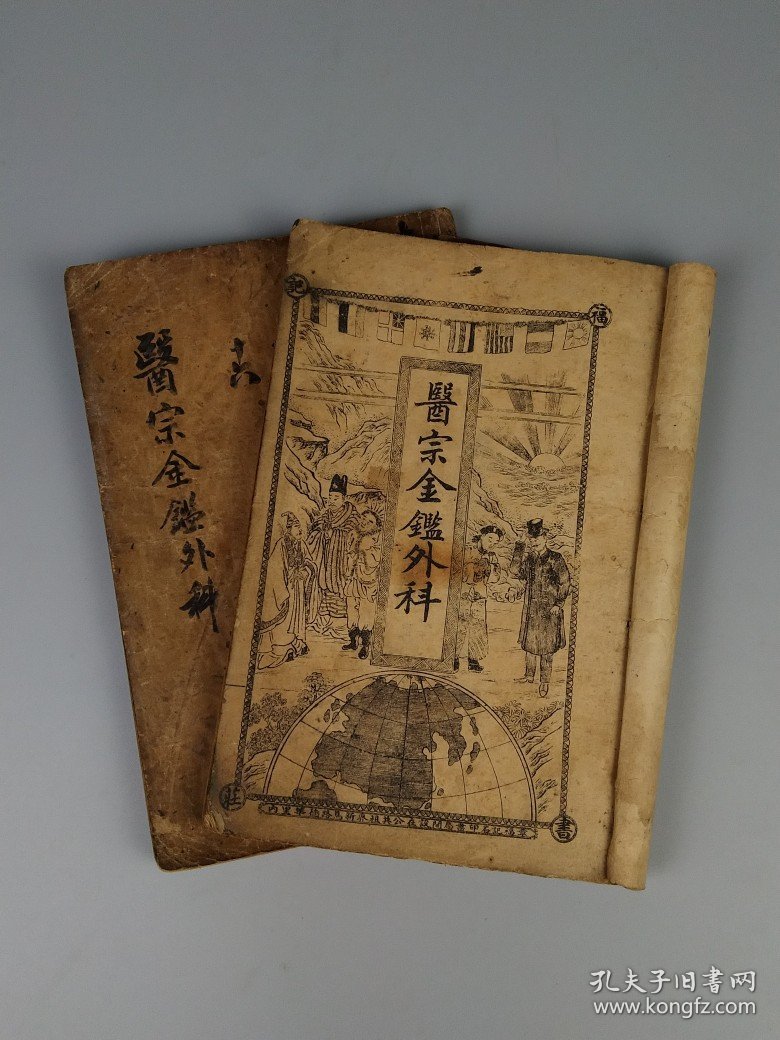 醫宗金鑑外科
十六
醫宗金鑑外科
福
記
書
莊
孔夫子旧书网
www.kongfz.com